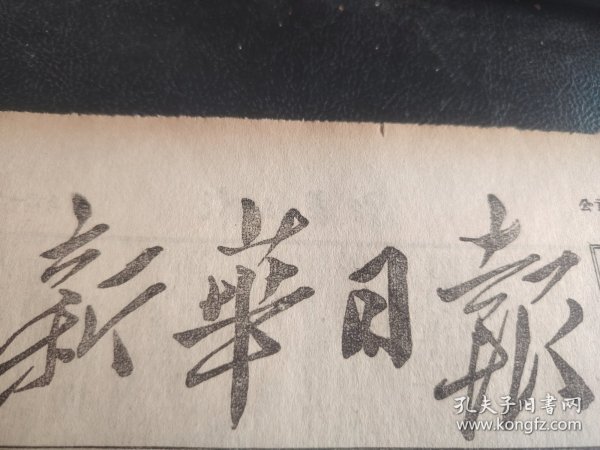 新華日報
公
孔夫子旧書网
www.kongfz.com